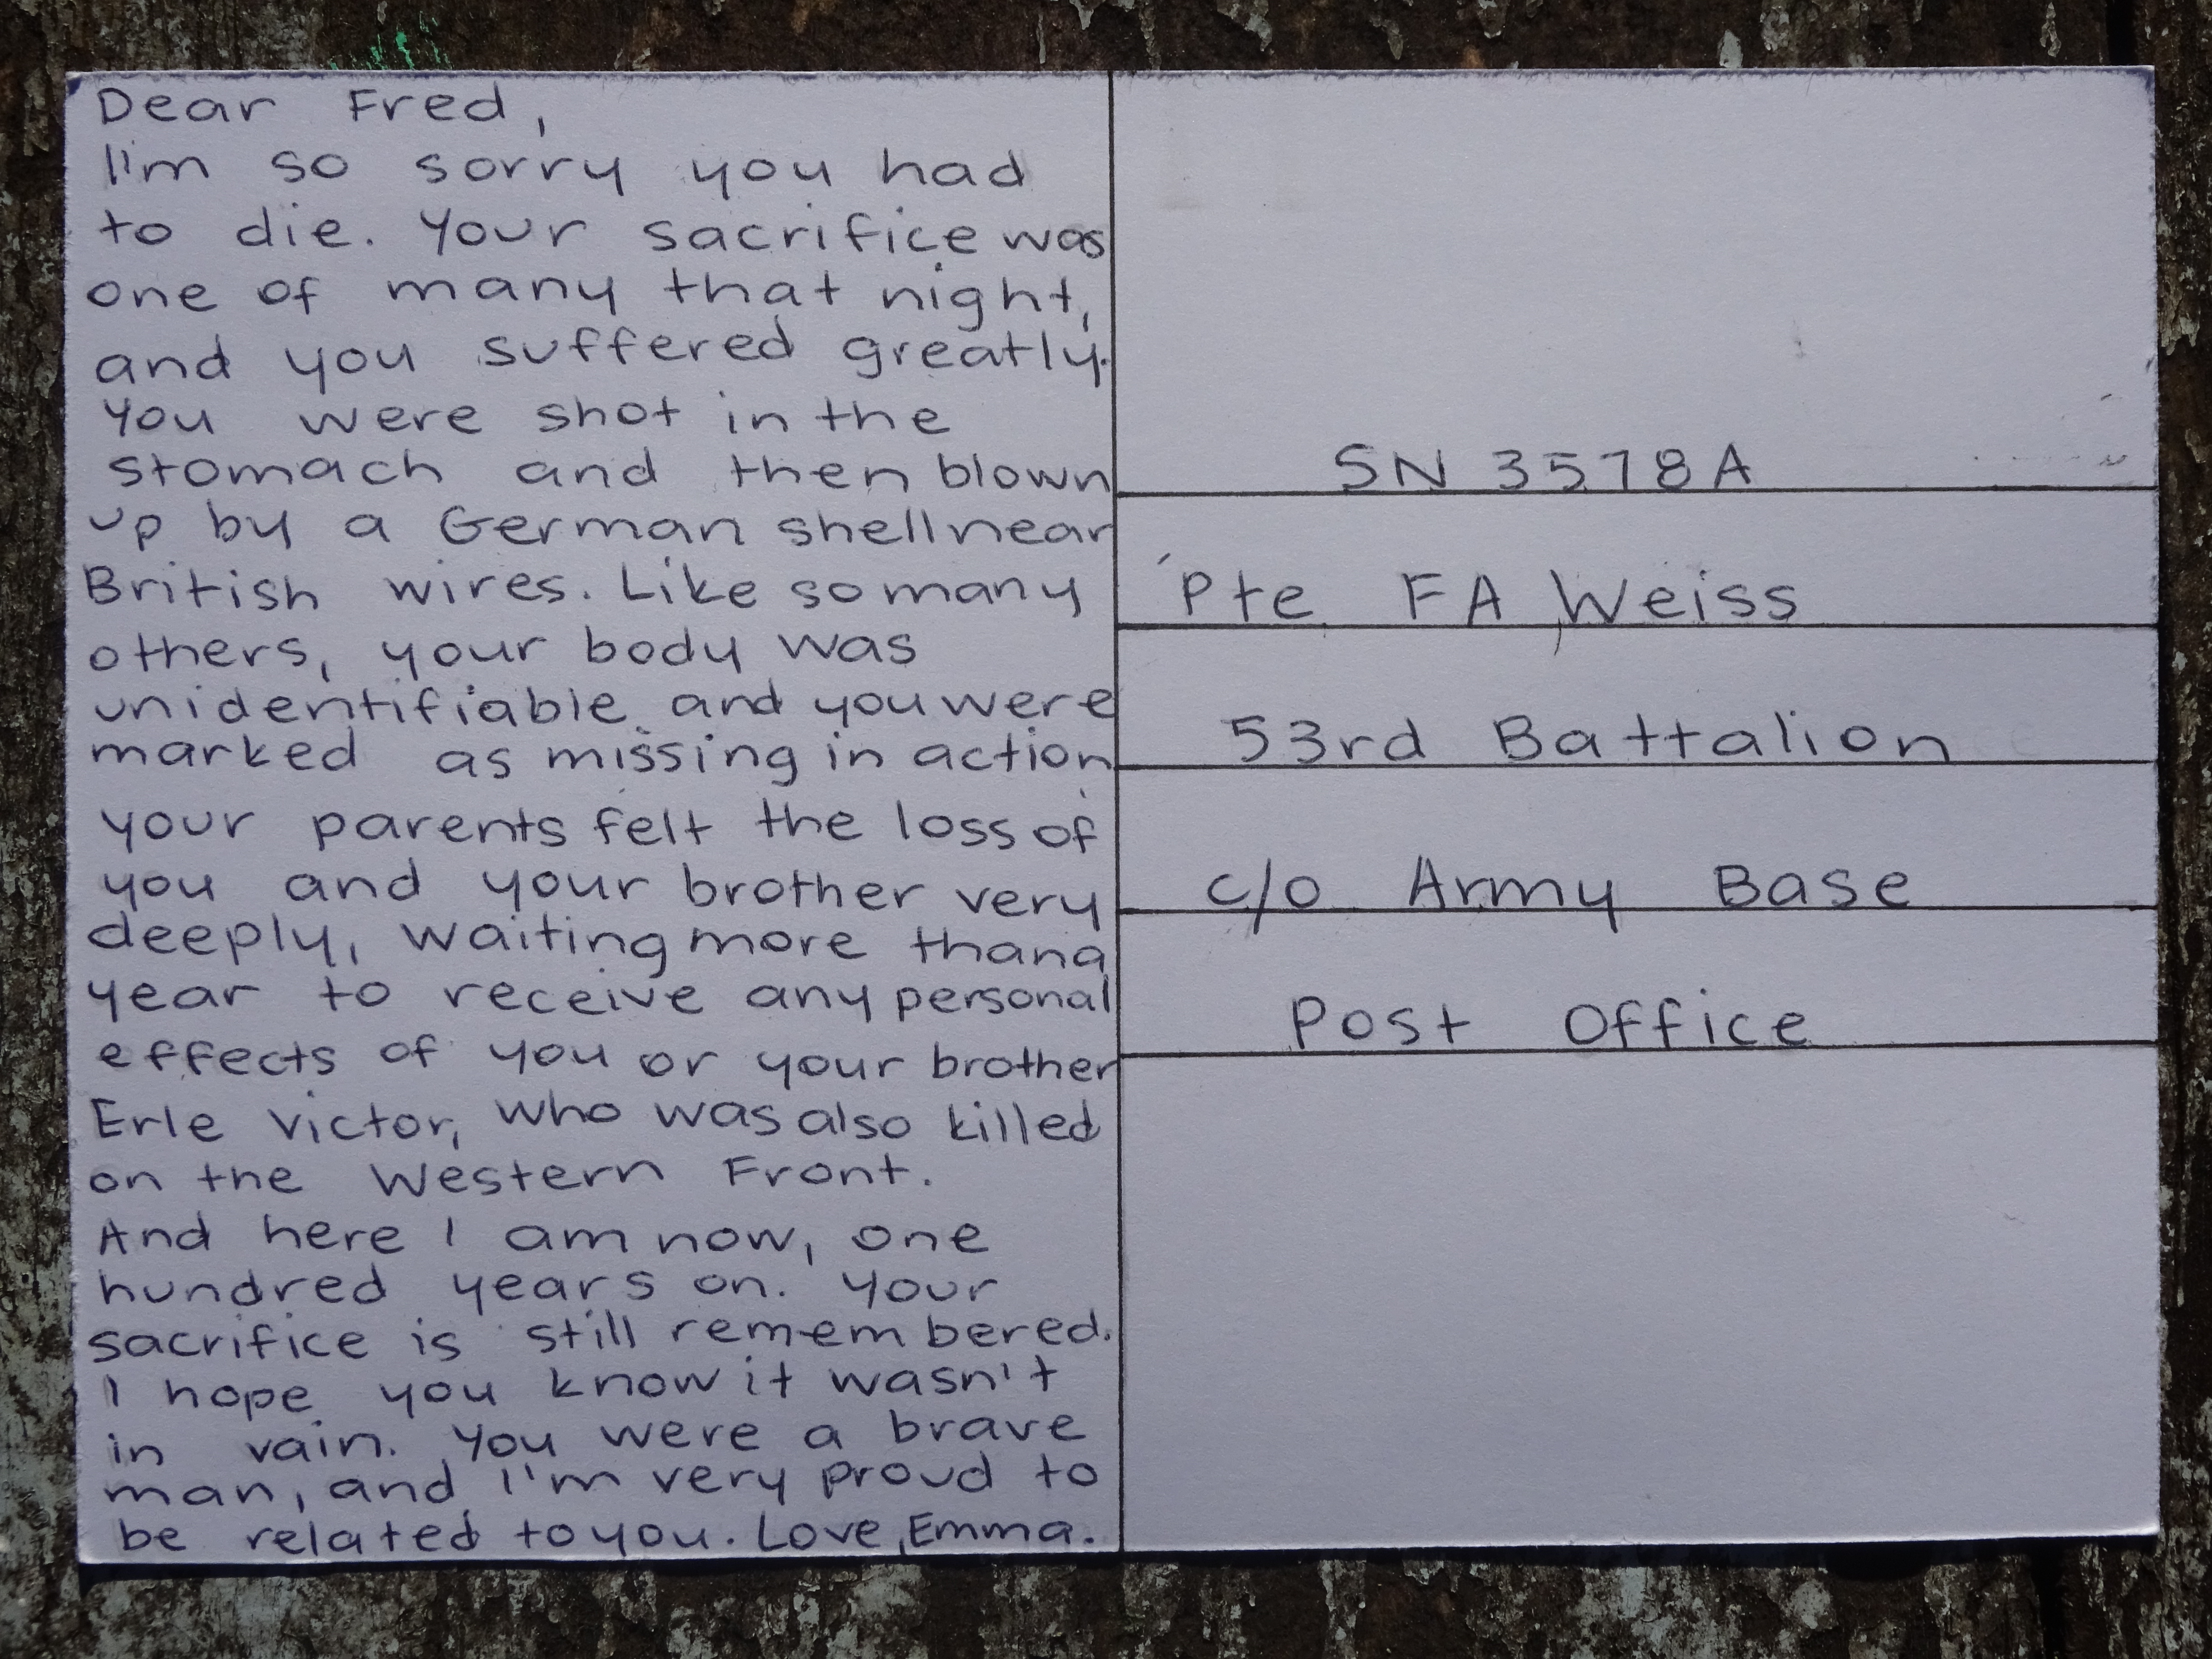 Dear Fred,
I'm so sorry you had
to die. Your sacrifice was
one of many that night,
and you suffered greatly.
You were shot in the
stomach and then blown
up by a German shell near
British wires. Like so many
others, your body was
unidentifiable and you were
marked as missing in action
your parents felt the loss of
you and your brother very
deeply, waiting more than a
year to receive any personal
effects of you or your brother
Erle Victor, who was also killed
on the Western Front.
And here I am now, one
hundred years on. Your
sacrifice is still remembered.
I hope you know it wasn't
in vain. You were a brave
man, and I'm very proud to
be related to you. Love, Emma.
SN 3578A
Pte FA Weiss
53rd Battalion
c/o Army Base
Post Office